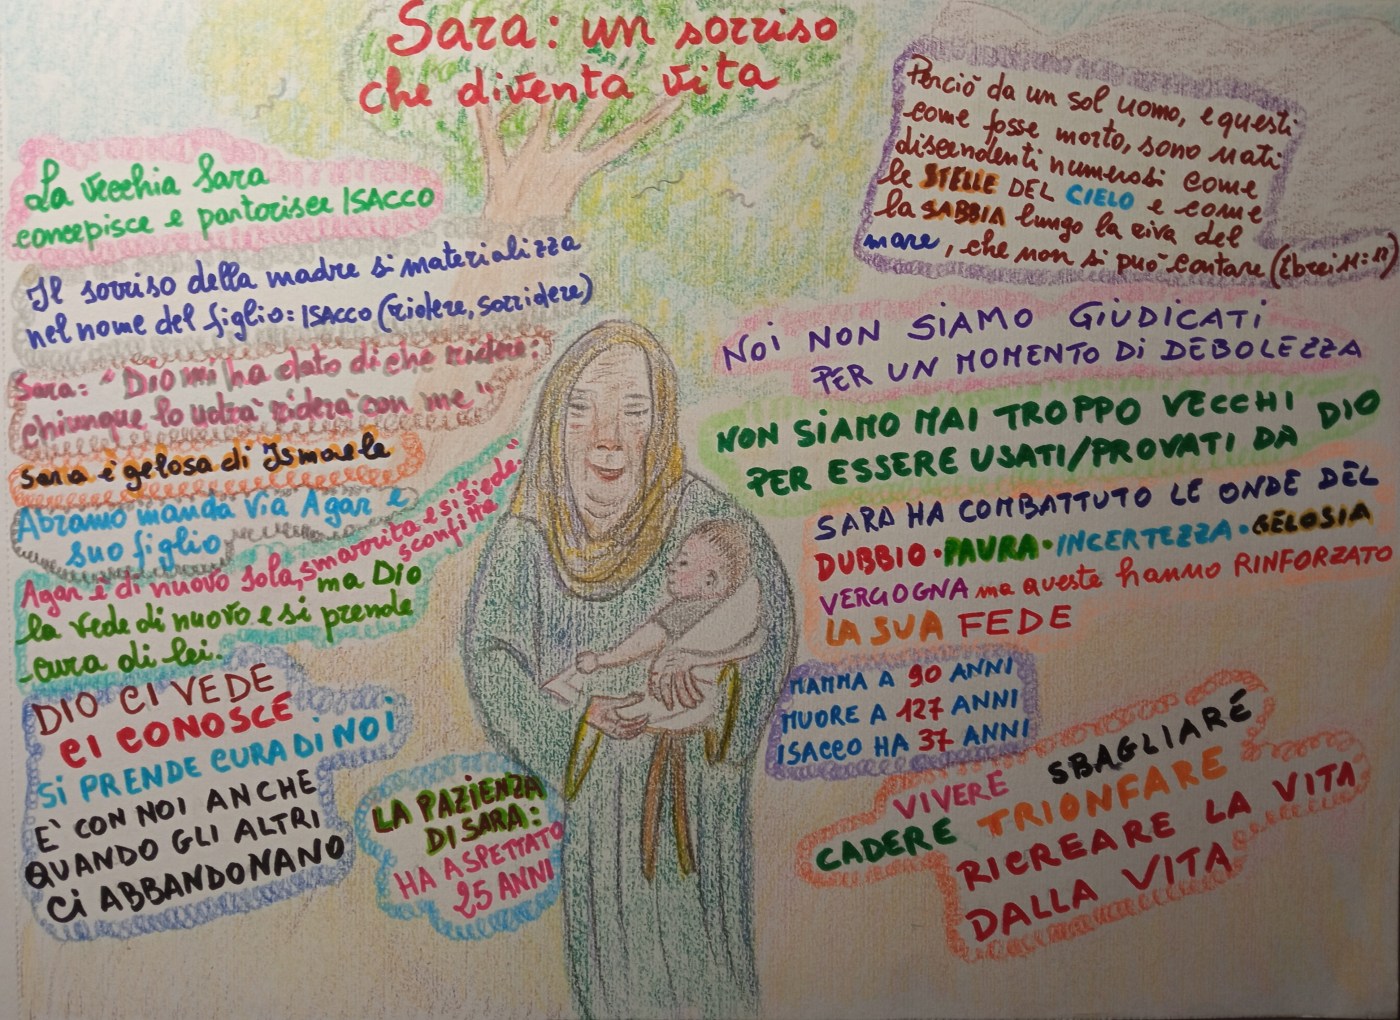 Sara: un sorriso
che diventa vita
La vecchia Sara
concepisce e partorisce ISACCO
Il sorriso della madre si materializza
nel nome del figlio: ISACCO (ridere, sorridere)
Sara: "Dio mi ha dato di che ridere:
chiunque lo udrà riderà con me"
Sara è gelosa di Ismaele
Abramo manda via Agar e
suo figlio
Agar è di nuovo sola, smarrita e si siede."
sconfitta
ma Dio
la vede di nuovo e si prende
cura di lei.
DIO CI VEDE
CI CONOSCE
SI PRENDE CURA DI NOI
E' CON NOI ANCHE
QUANDO GLI ALTRI
CI ABBANDONANO
LA PAZIENZA
DI SARA:
HA ASPETTATO
25 ANNI
Perciò da un sol uomo, e questi
come fosse morto, sono nati
discendenti numerosi come
le STELLE DEL CIELO e come
la SABBIA lungo la riva del
mare, che non si può contare (Ebrei 11:12)
NOI NON SIAMO GIUDICATI
PER UN MOMENTO DI DEBOLEZZA
NON SIAMO MAI TROPPO VECCHI
PER ESSERE USATI/PROVATI DA DIO
SARA HA COMBATTUTO LE ONDE DEL
DUBBIO • PAURA • INCERTEZZA • GELOSIA
VERGOGNA ma queste hanno RINFORZATO
LA SUA FEDE
MAMMA A 90 ANNI
MUORE A 127 ANNI
ISACCO HA 37 ANNI
VIVERE SBAGLIARE
CADERE TRIONFARE
RICREARE LA VITA
DALLA VITA